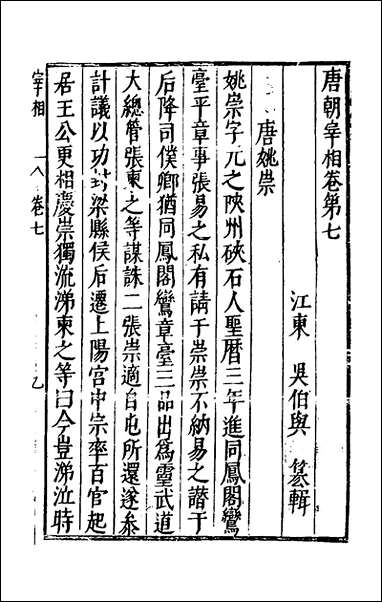 唐朝宰相卷第七
江東 吳伯與 纂輯
唐姚崇
姚崇字元之陜州硤石人聖曆三年進同鳳閣鸞
臺平章事張易之私有請于崇崇不納易之譖于
后降司僕卿猶同鳳閣鸞章臺三品出爲靈武道
大總管張柬之等謀誅二張崇適自屯所還遂叅
計議以功封梁縣侯后遷上陽宮中宗率百官起
居王公更相慶崇獨流涕柬之等曰今豈涕泣時
宰相 卷七